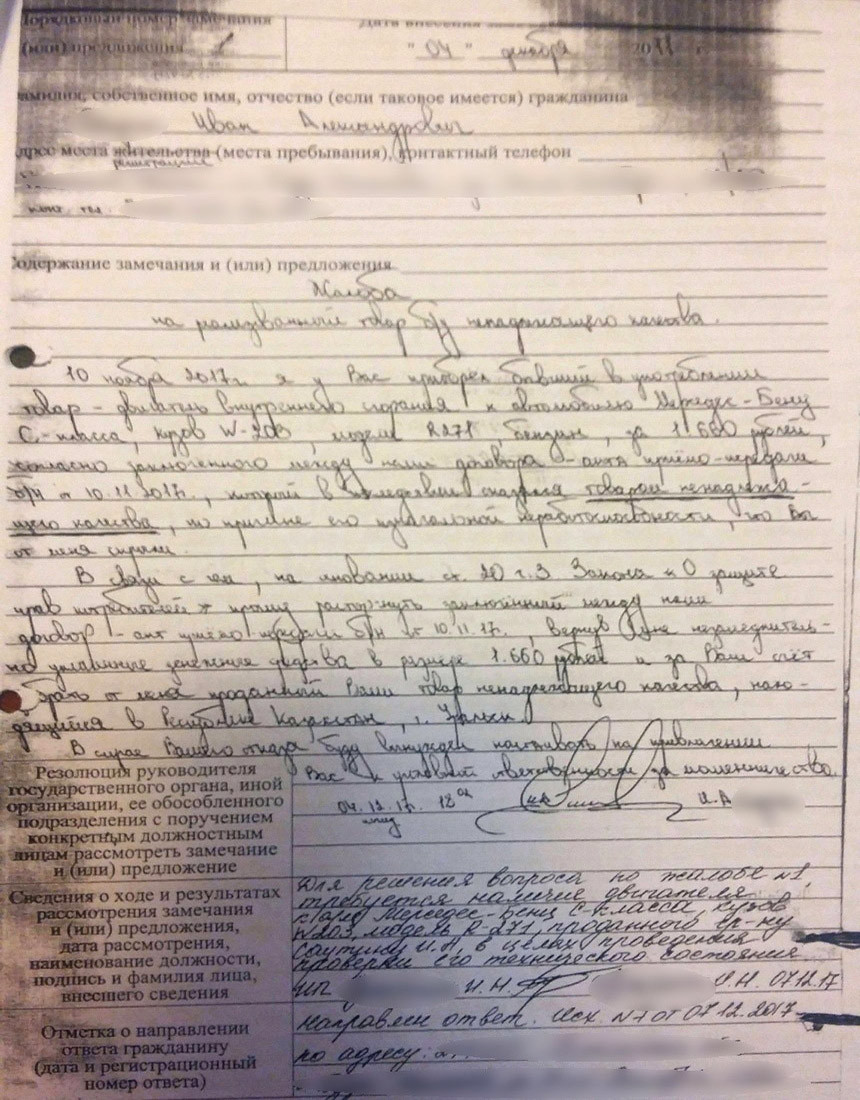 Порядковый номер замечания
(или) предложения 1
Дата внесения
" 04 " декабря 2017 г.
фамилия, собственное имя, отчество (если таковое имеется) гражданина
Иван Александрович
адрес места жительства (места пребывания), контактный телефон
регистрации
конт. тел.
Содержание замечания и (или) предложения
Жалоба
на реализованный товар б/у ненадлежащего качества.
10 ноября 2017г. я у Вас приобрел бывший в употреблении
товар - двигатель внутреннего сгорания к автомобилю Мерседес-Бенц
С-класса, кузов W-203, модель R271, бензин, за 1 660 рублей,
согласно заключенного между нами договора - акта приёмо-передачи
б/н от 10.11.2017г., который в последствии оказался товаром ненадлежа-
щего качества, по причине его изначальной неработоспособности, что Вы
от меня скрыли.
В связи с чем, на основании ст. 20 ч.3 Закона «О защите
прав потребителей» прошу расторгнуть заключённый между нами
договор - акт приёмо-передачи б/н от 10.11.17г., вернув мне незамедлитель-
но уплаченные денежные средства в размере 1.660 рублей и за Ваш счёт
забрать от меня проданный Вами товар ненадлежащего качества, нахо-
дящийся в Республике Казахстан, г. Уральск.
В случае Вашего отказа буду вынужден настаивать на привлечении
Вас к уголовной ответственности за мошенничество.
04.12.17. 18
И.А
Резолюция руководителя
государственного органа, иной
организации, ее обособленного
подразделения с поручением
конкретным должностным
лицам рассмотреть замечание
и (или) предложение
Сведения о ходе и результатах
рассмотрения замечания
и (или) предложения,
дата рассмотрения,
наименование должности,
подпись и фамилия лица,
внесшего сведения
Для решения вопроса по жалобе №1
требуется наличие двигателя
к а/м Мерседес-Бенц С-класса, кузов
W203, модель R-271, проданного гр-ну
И.А, в целях проведения
проверки его технического состояния.
ИП И.Н. И.Н. 07.12.17
Отметка о направлении
ответа гражданину
(дата и регистрационный
номер ответа)
Направлен ответ. Исх. №7 от 07.12.2017
по адресу: